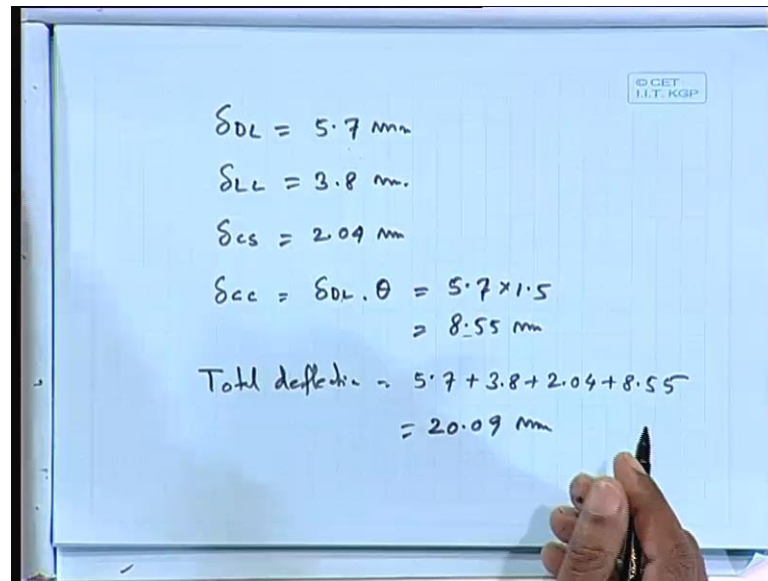 © CET
I.I.T. KGP
δDL = 5.7 mm
δLL = 3.8 mm.
δcs = 2.04 mm
δcc = δDL . θ = 5.7 × 1.5
= 8.55 mm
Total deflection = 5.7 + 3.8 + 2.04 + 8.55
= 20.09 mm